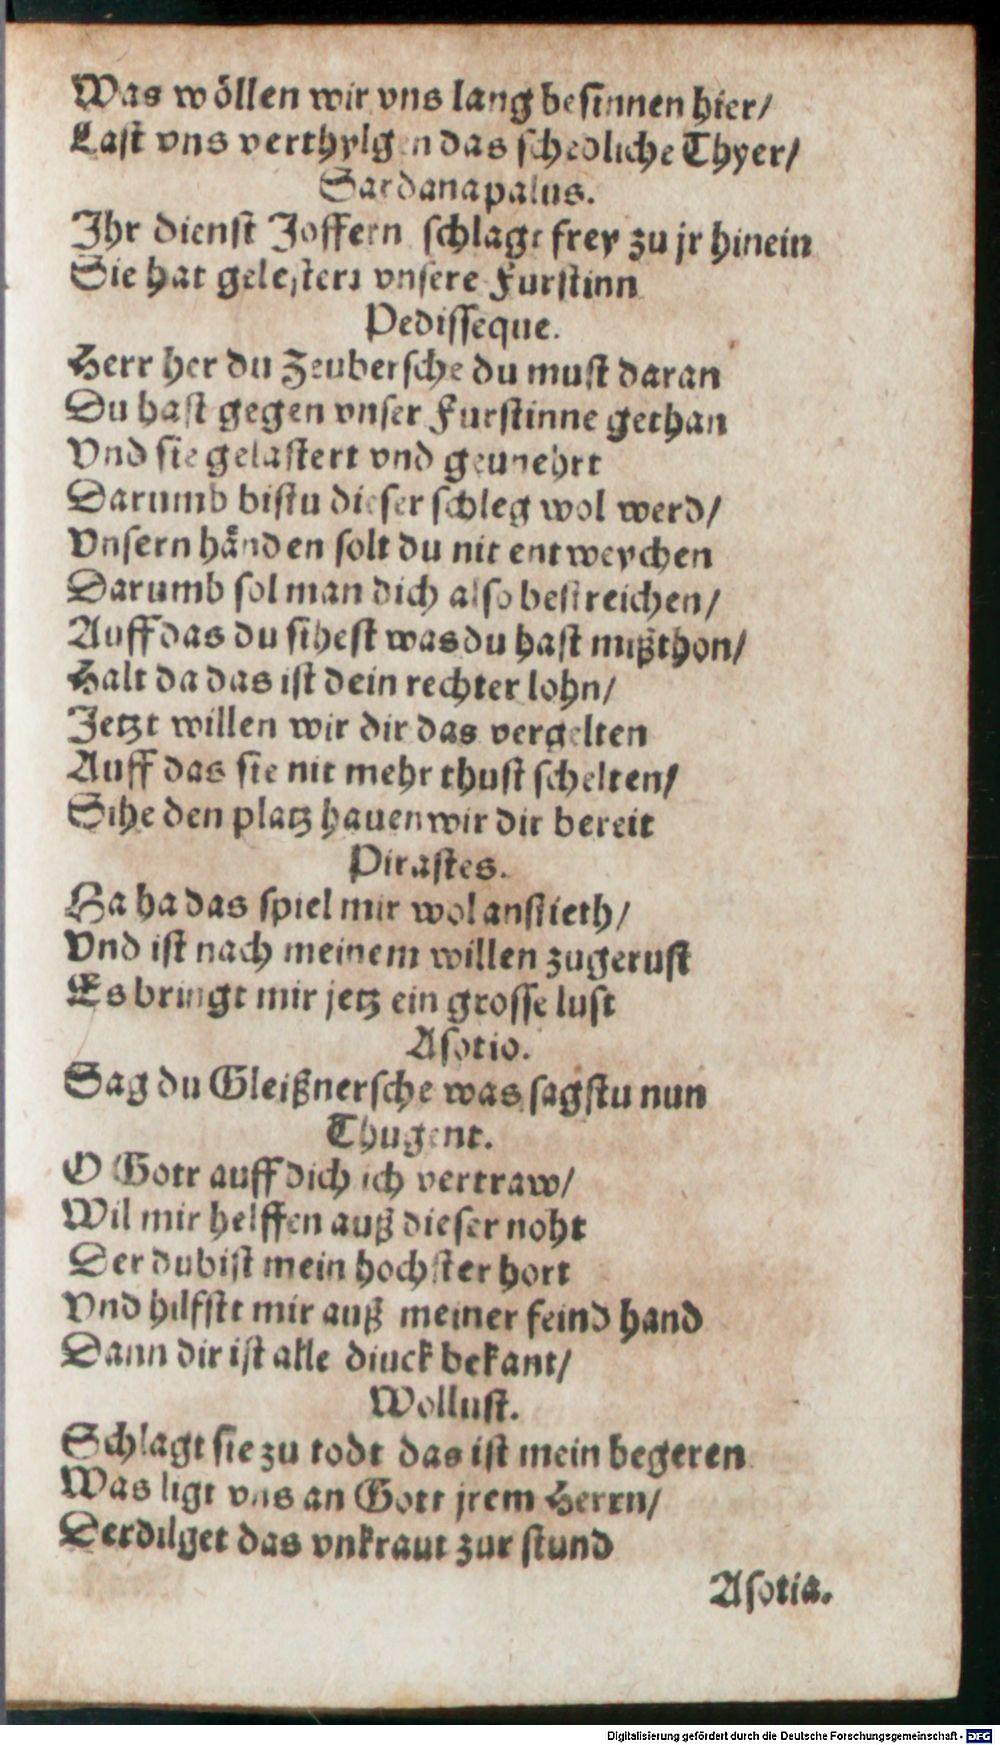 Was wöllen wir vns lang besinnen hier/
Last vns verthylgen das schedliche Thyer/
Sardanapalus.
Ihr dienst Joffern schlagt frey zu jr hinein
Sie hat gelestert vnsere Furstinn
Pedisseque.
Herr her du Zeubersche du must daran
Du hast gegen vnser Furstinne gethan
Vnd sie gelastert vnd geunehrt
Darumb bistu dieser schleg wol werd/
Vnsern hånden solt du nit entweychen
Darumb sol man dich also bestreichen/
Auff das du sihest was du hast mißthon/
Halt da das ist dein rechter lohn/
Jetzt willen wir dir das vergelten
Auff das sie nit mehr thust schelten/
Sihe den platz hauen wir dir bereit
Pirastes.
Ha ha das spiel mir wol anstieth/
Vnd ist nach meinem willen zugerust
Es bringt mir jetz ein grosse lust
Asotio.
Sag du Gleißnersche was sagstu nun
Thugent.
O Gott auff dich ich vertraw/
Wil mir helffen auß dieser noht
Der du bist mein hochster hort
Vnd hilfstt mir auß meiner feind hand
Dann dir ist alle diuck bekant/
Wollust.
Schlagt sie zu todt das ist mein begeren
Was ligt vns an Gott jrem Herrn/
Derdilget das vnkraut zur stund
Asotia.
Digitalisierung gefördert durch die Deutsche Forschungsgemeinschaft - DFG